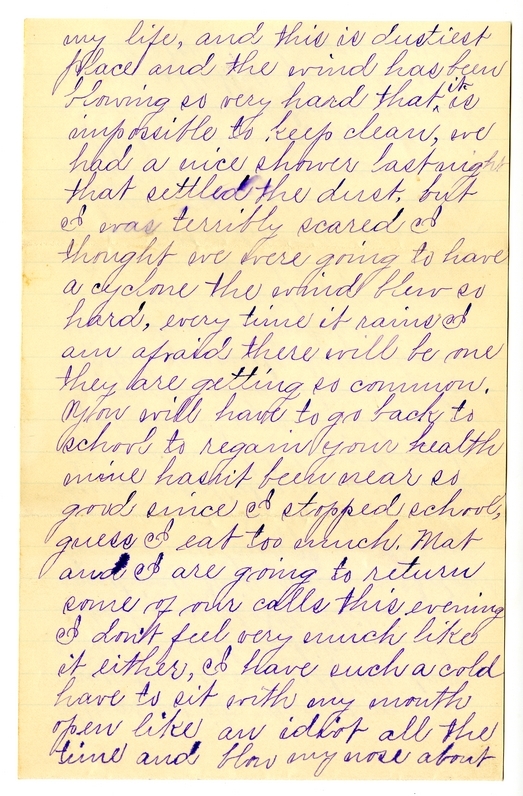 my life, and this is dustiest
place and the wind has been
blowing so very hard that it is
impossible to keep clean, we
had a nice shower last night
that settled the dust, but
I was terribly scared I
thought we were going to have
a cyclone the wind blew so
hard, every time it rains I
am afraid there will be one
they are getting so common.
You will have to go back to
school to regain your health
mine hasn't been near so
good since I stopped school,
guess I eat too much. Mat
and I are going to return
some of our calls this evening
I don't feel very much like
it either, I have such a cold
have to sit with my mouth
open like an idiot all the
time and blow my nose about